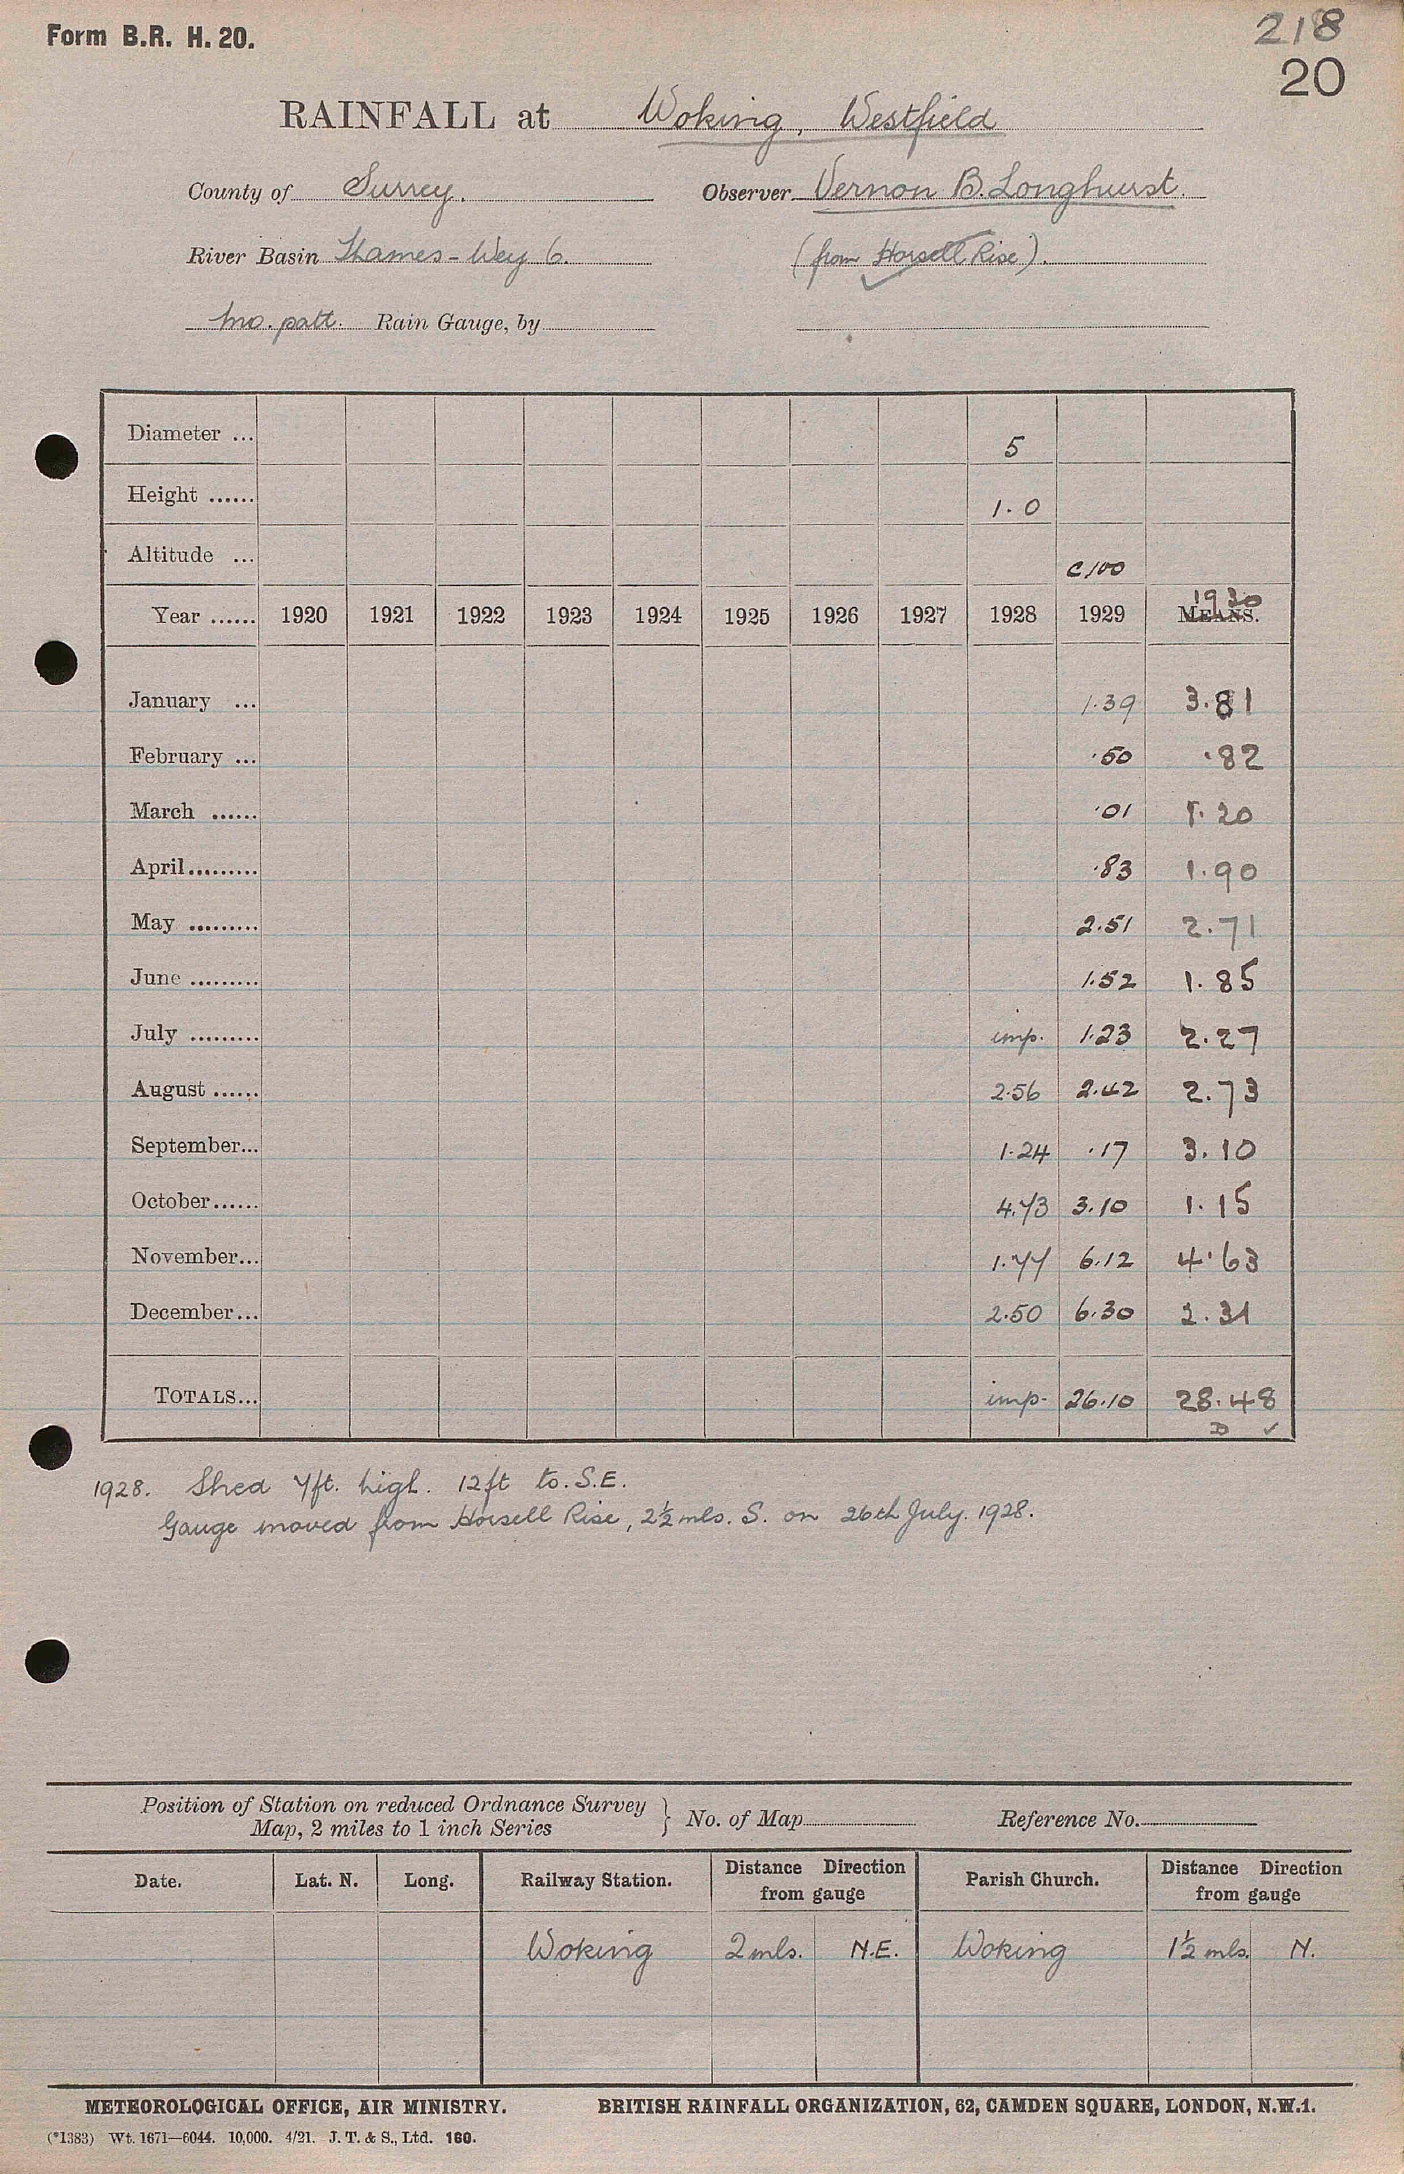 Form B.R. H. 20.
218
20
RAINFALL at Woking, Westfield
County of Surrey. Observer Vernon B. Longhurst.
River Basin Thames-Wey 6. (from Horsell Rise).
Mo. patt. Rain Gauge, by
Diameter ... 5
Height ...... 1.0
Altitude ... c100
1930
Year ...... 1920 1921 1922 1923 1924 1925 1926 1927 1928 1929 MEANS.
January ... 1.39 3.81
February ... .50 .82
March ...... .01 1.20
April......... .83 1.90
May ......... 2.51 2.71
June ......... 1.52 1.85
July ......... imp. 1.23 2.27
August ...... 2.56 2.42 2.73
September... 1.24 .17 3.10
October...... 4.73 3.10 1.15
November... 1.77 6.12 4.63
December... 2.50 6.30 2.31
TOTALS... imp. 26.10 28.48
D ✓
1928. Shed 7ft. high. 12ft to. S.E.
Gauge moved from Horsell Rise, 2½ mls. S. on 26th July. 1928.
Position of Station on reduced Ordnance Survey
Map, 2 miles to 1 inch Series } No. of Map Reference No.
Date. Lat. N. Long. Railway Station. Distance Direction from gauge Parish Church. Distance Direction from gauge
Woking 2 mls. N.E. Woking 1½ mls. N.
METEOROLOGICAL OFFICE, AIR MINISTRY. BRITISH RAINFALL ORGANIZATION, 62, CAMDEN SQUARE, LONDON, N.W.1.
(*1383) Wt. 1671—6044. 10,000. 4/21. J. T. & S., Ltd. 160.